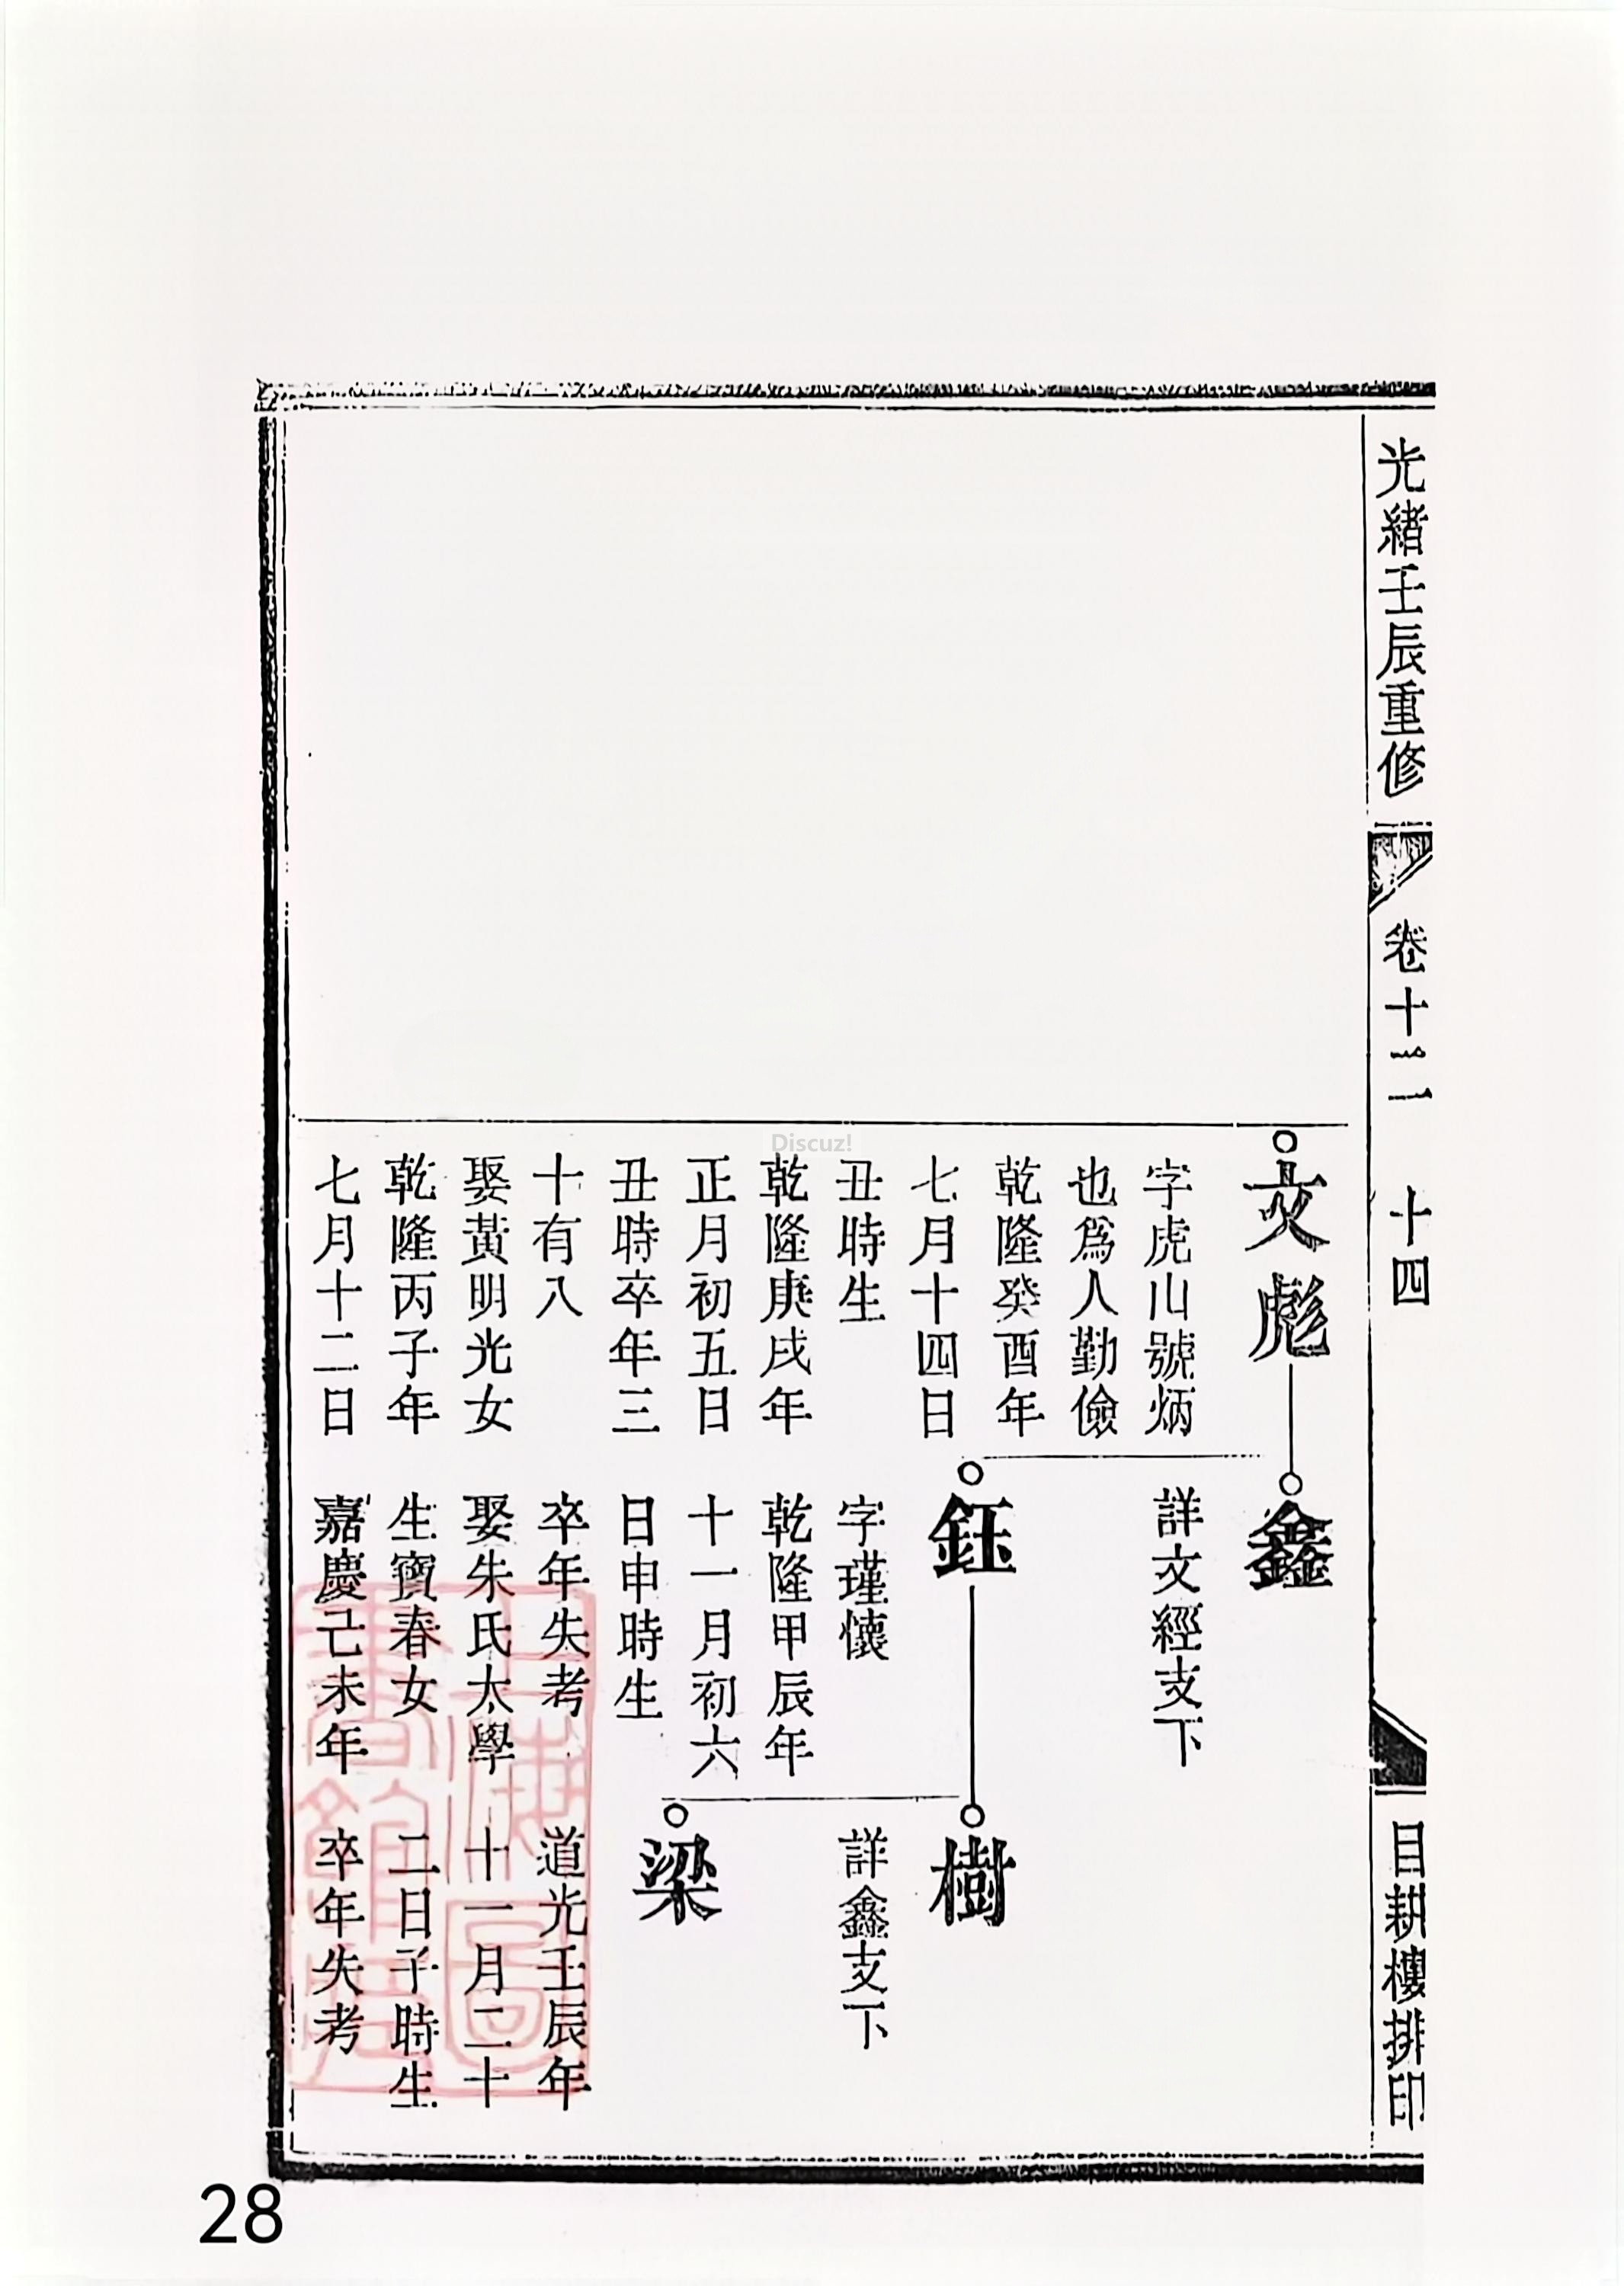 光緒壬辰重修
卷十二
十四
目耕樓排印
文彪
字虎山號炳
也為人勤儉
乾隆癸酉年
七月十四日
丑時生
乾隆庚戌年
正月初五日
丑時卒年三
十有八
娶黃明光女
乾隆丙子年
七月十二日
鑫
詳文經支下
鈺
字瑾懷
乾隆甲辰年
十一月初六
日申時生
卒年失考
娶朱氏太學
生寶春女
嘉慶己未年
樹
詳鑫支下
梁
道光壬辰年
十一月二十
二日子時生
卒年失考
上海圖
書館藏
Discuz!
28